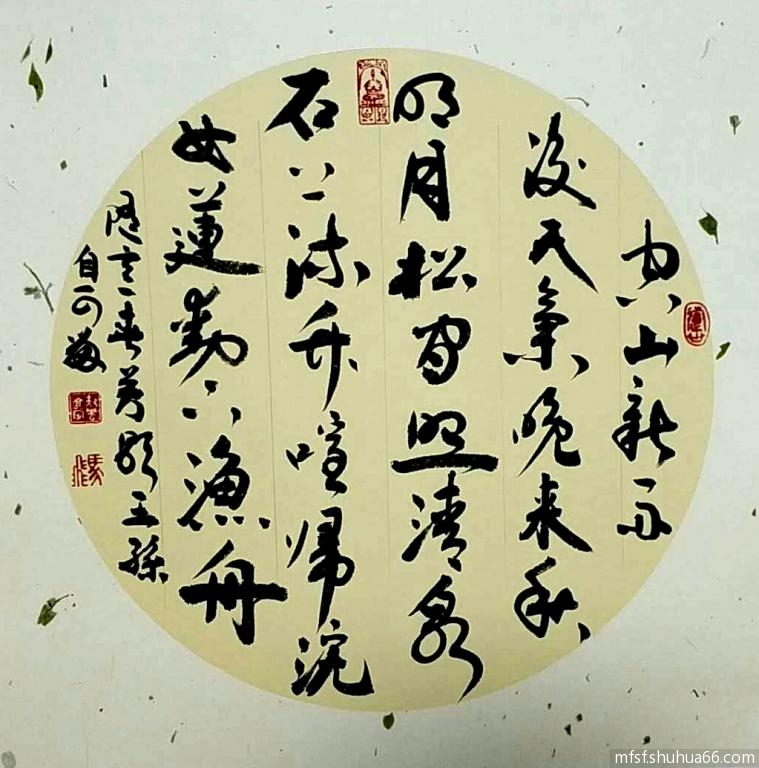 空山新雨
後天氣晚来秋
明月松間照清泉
石上流竹喧歸浣
女蓮動下漁舟
隨意春芳歇王孫
自可留
mfsfshuhua66.com